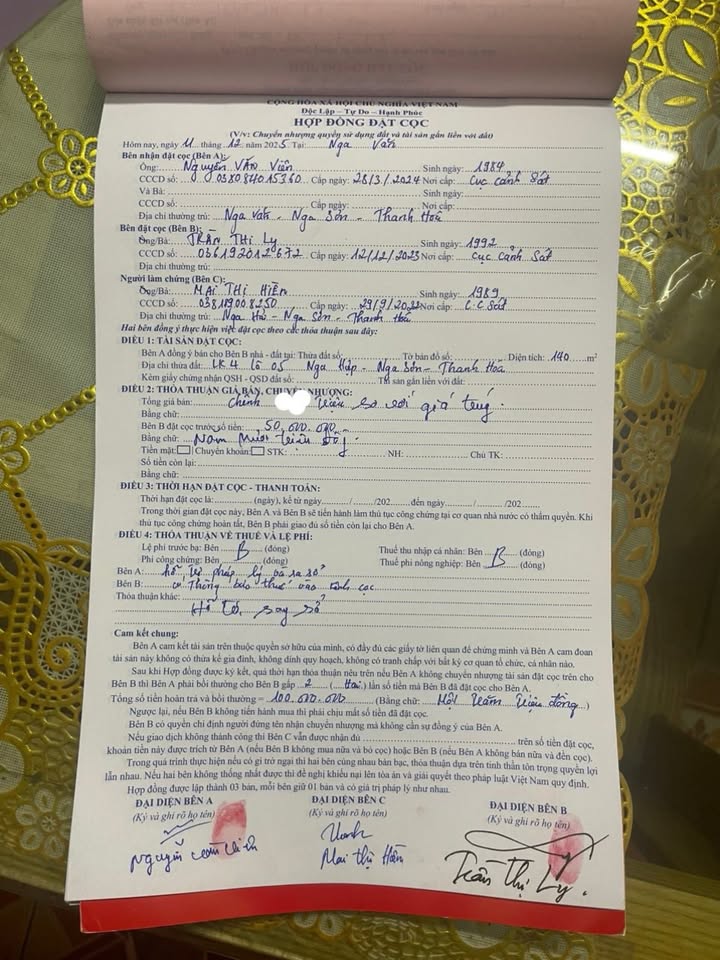 CỘNG HÒA XÃ HỘI CHỦ NGHĨA VIỆT NAM
Độc Lập – Tự Do – Hạnh Phúc
HỢP ĐỒNG ĐẶT CỌC
(V/v: Chuyển nhượng quyền sử dụng đất và tài sản gắn liền với đất)
Hôm nay, ngày 11 tháng 12 năm 2025 Tại: Nga Văn
Bên nhận đặt cọc (Bên A):
Ông: Nguyễn Văn Viên Sinh ngày: 1984
CCCD số: 038084015360 Cấp ngày: 26/3/2024 Nơi cấp: cục cảnh sát
Và Bà: Sinh ngày:
CCCD số: Cấp ngày: Nơi cấp:
Địa chỉ thường trú: Nga Văn - Nga Sơn - Thanh Hoá
Bên đặt cọc (Bên B):
Ông/Bà: TRẦN THỊ Ly Sinh ngày: 1992
CCCD số: 036192012672 Cấp ngày: 12/12/2023 Nơi cấp: cục cảnh sát
Địa chỉ thường trú:
Người làm chứng (Bên C):
Ông/Bà: MAI THỊ HIỀN Sinh ngày: 1989
CCCD số: Cấp ngày: 29/9/2022 Nơi cấp: C.C Sát
Địa chỉ thường trú: Nga - Nga Sơn - Thanh Hoá
Hai bên đồng ý thực hiện việc đặt cọc theo các thỏa thuận sau đây:
ĐIỀU 1: TÀI SẢN ĐẶT CỌC:
Bên A đồng ý bán cho Bên B nhà - đất tại: Thửa đất số: Tờ bản đồ số: Diện tích: 140 m²
Địa chỉ thửa đất: LK4 lô 05 Nga Hiệp - Nga Sơn - Thanh Hoá
Kèm giấy chứng nhận QSH - QSD đất số: Tài sản gắn liền với đất:
ĐIỀU 2: THỎA THUẬN GIÁ BÁN, CHUYỂN NHƯỢNG:
Tổng giá bán: Chênh triệu so với giá
Bằng chữ:
Bên B đặt cọc trước số tiền: 50.000.000
Bằng chữ: Năm mươi triệu đồng
Tiền mặt: Chuyển khoản: STK: NH: Chủ TK:
Số tiền còn lại:
Bằng chữ:
ĐIỀU 3: THỜI HẠN ĐẶT CỌC - THANH TOÁN:
Thời hạn đặt cọc là: (ngày), kể từ ngày / /202 đến ngày / /202
Trong thời gian đặt cọc này, Bên A và Bên B sẽ tiến hành làm thủ tục công chứng tại cơ quan nhà nước có thẩm quyền. Khi
thủ tục công chứng hoàn tất, Bên B phải giao đủ số tiền còn lại cho Bên A.
ĐIỀU 4: THỎA THUẬN VỀ THUẾ VÀ LỆ PHÍ:
Lệ phí trước bạ: Bên B (đóng) Thuế thu nhập cá nhân: Bên B (đóng)
Phí công chứng: Bên B (đóng) Thuế phi nông nghiệp: Bên B (đóng)
Bên A: hỗ trợ pháp lý ra sổ
Bên B: có thông báo thuế vào cọc
Thỏa thuận khác:
Hỗ trợ sang sổ
Cam kết chung:
Bên A cam kết tài sản trên thuộc quyền sở hữu của mình, có đầy đủ các giấy tờ liên quan để chứng minh và Bên A cam đoan
tài sản này không có thừa kế gia đình, không dính quy hoạch, không có tranh chấp với bất kỳ cơ quan tổ chức, cá nhân nào.
Sau khi Hợp đồng được ký kết, quá thời hạn thỏa thuận nêu trên nếu Bên A không chuyển nhượng tài sản đặt cọc trên cho
Bên B thì Bên A phải bồi thường cho Bên B gấp 2 (Hai) lần số tiền mà Bên B đã đặt cọc cho Bên A.
Tổng số tiền hoàn trả và bồi thường = 100.000.000 (Bằng chữ: Một trăm triệu đồng)
Ngược lại, nếu Bên B không tiến hành mua thì phải chịu mất số tiền đã đặt cọc.
Bên B có quyền chỉ định người đứng tên nhận chuyển nhượng mà không cần sự đồng ý của Bên A.
Nếu giao dịch không thành công thì Bên C vẫn được nhận đủ trên số tiền đặt cọc,
khoản tiền này được trích từ Bên A (nếu Bên B không mua nữa và bỏ cọc) hoặc Bên B (nếu Bên A không bán nữa và đền cọc).
Trong quá trình thực hiện nếu có gì trở ngại thì hai bên cùng nhau bàn bạc, thỏa thuận dựa trên tinh thần tôn trọng quyền lợi
lẫn nhau. Nếu hai bên không thống nhất được thì đề nghị khiếu nại lên tòa án và giải quyết theo pháp luật Việt Nam quy định.
Hợp đồng được lập thành 03 bản, mỗi bên giữ 01 bản và có giá trị pháp lý như nhau.
ĐẠI DIỆN BÊN A ĐẠI DIỆN BÊN C ĐẠI DIỆN BÊN B
(Ký và ghi rõ họ tên) (Ký và ghi rõ họ tên) (Ký và ghi rõ họ tên)
Nguyễn Văn Mai Thị Hiền Trần Thị Ly